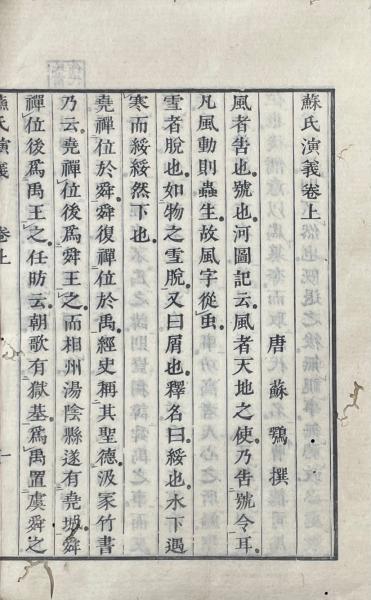 蘇氏演義卷上
唐蘇鶚撰
風者告也號也河圖記云風者天地之使乃告號令耳
凡風動則蟲生故風字從虫
雪者脫也如物之雪脫又曰屑也釋名曰綏也水下遇
寒而綏綏然下也
堯禪位於舜舜復禪位於禹經史稱其聖德汲冢竹書
乃云堯禪位後爲舜王之而相州湯陰縣遂有堯城舜
禪位後爲禹王之任昉云朝歌有獄基爲禹置虞舜之
蘇氏演義 卷上 一